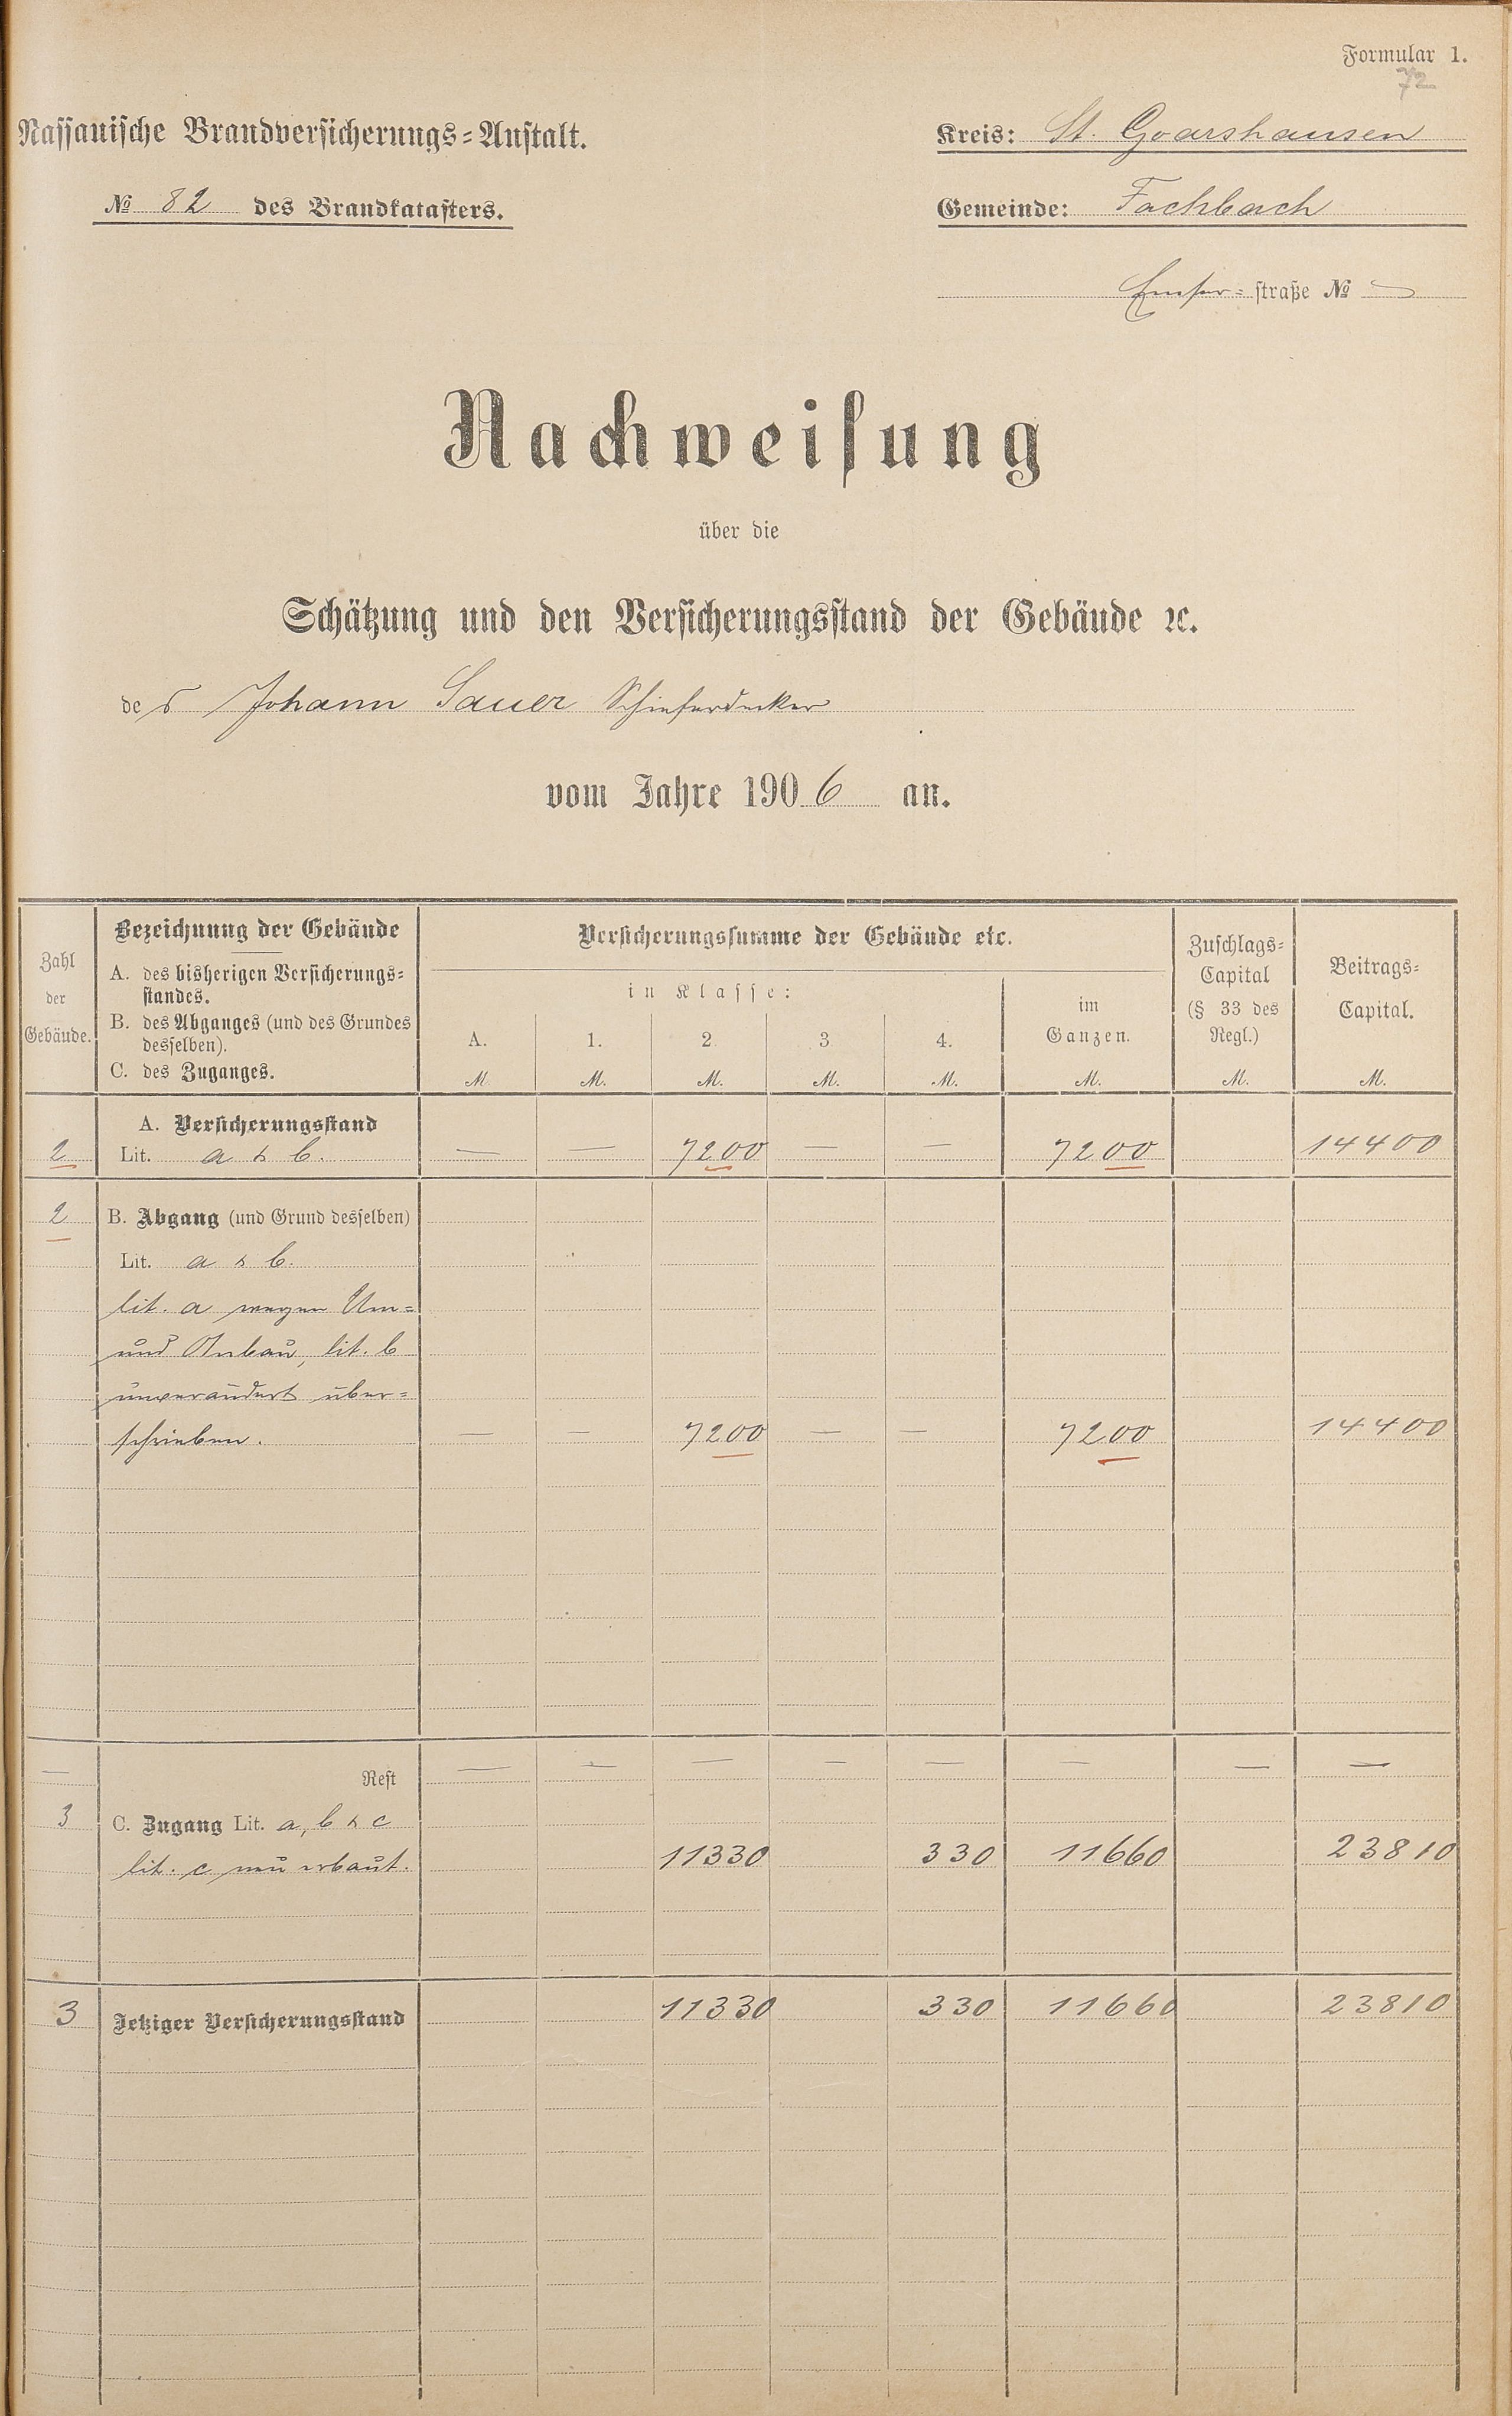 Formular 1.
72
Nassauische Brandversicherungs=Anstalt.
Kreis: St. Goarshausen
№ 82 des Brandkatasters.
Gemeinde: Fachbach
Emser=straße № –
Nachweisung
über die
Schätzung und den Versicherungsstand der Gebäude ꝛc.
des Johann Sauer Schieferdecker
vom Jahre 1906 an.
Zahl der Gebäude.
Bezeichnung der Gebäude
A. des bisherigen Versicherungs=
standes.
B. des Abganges (und des Grundes
desselben).
C. des Zuganges.
Versicherungssumme der Gebäude etc.
in Klasse:
A. 1. 2 3 4.
im
Ganzen.
Zuschlags=
Capital
(§ 33 des
Regl.)
Beitrags=
Capital.
M. M. M. M. M. M. M. M.
A. Versicherungsstand
2 Lit. a & b. — — 7200 — — 7200 14400
2 B. Abgang (und Grund desselben)
Lit. a & b.
lit. a wegen Um=
und Anbau, lit. b
unverändert über=
schrieben. — — 7200 — — 7200 14400
— Rest — — — — — — — —
3 C. Zugang Lit. a, b & c
lit. c neu erbaut. 11330 330 11660 23810
3 Jetziger Versicherungsstand 11330 330 11660 23810